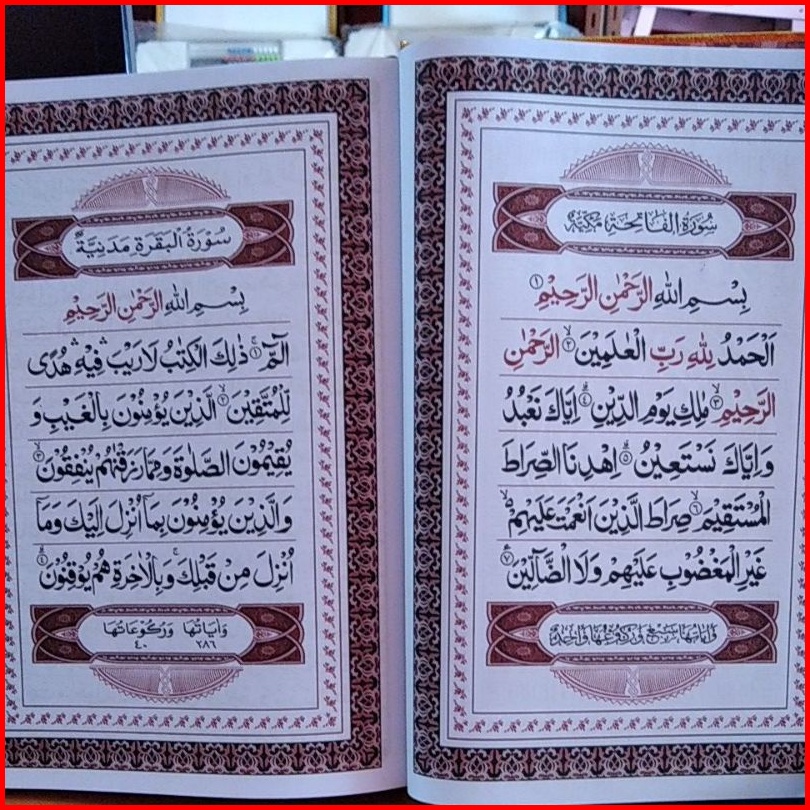 سُوْرَةُ الْفَاتِحَةِ مَكِّيَّةٌ
بِسْمِ اللهِ الرَّحْمٰنِ الرَّحِيْمِ ١
اَلْحَمْدُ لِلّٰهِ رَبِّ الْعٰلَمِيْنَ ٢ الرَّحْمٰنِ
الرَّحِيْمِ ٣ مٰلِكِ يَوْمِ الدِّيْنِ ٤ اِيَّاكَ نَعْبُدُ
وَاِيَّاكَ نَسْتَعِيْنُ ٥ اِهْدِنَا الصِّرَاطَ
الْمُسْتَقِيْمَ ٦ صِرَاطَ الَّذِيْنَ اَنْعَمْتَ عَلَيْهِمْ
غَيْرِ الْمَغْضُوْبِ عَلَيْهِمْ وَلَا الضَّآلِّيْنَ ٧
وَاٰيَاتُهَا سَبْعٌ وَرُكُوْعُهَا وَاحِدَةٌ
سُوْرَةُ الْبَقَرَةِ مَدَنِيَّةٌ
بِسْمِ اللهِ الرَّحْمٰنِ الرَّحِيْمِ
الٓمّٓ ١ ذٰلِكَ الْكِتٰبُ لَا رَيْبَ فِيْهِ هُدًى
لِّلْمُتَّقِيْنَ ٢ الَّذِيْنَ يُؤْمِنُوْنَ بِالْغَيْبِ وَ
يُقِيْمُوْنَ الصَّلٰوةَ وَمِمَّا رَزَقْنٰهُمْ يُنْفِقُوْنَ ٣
وَالَّذِيْنَ يُؤْمِنُوْنَ بِمَآ اُنْزِلَ اِلَيْكَ وَمَآ
اُنْزِلَ مِنْ قَبْلِكَ وَبِالْاٰخِرَةِ هُمْ يُوْقِنُوْنَ ٤
وَاٰيَاتُهَا وَرُكُوْعَاتُهَا
٢٨٦ ٤٠